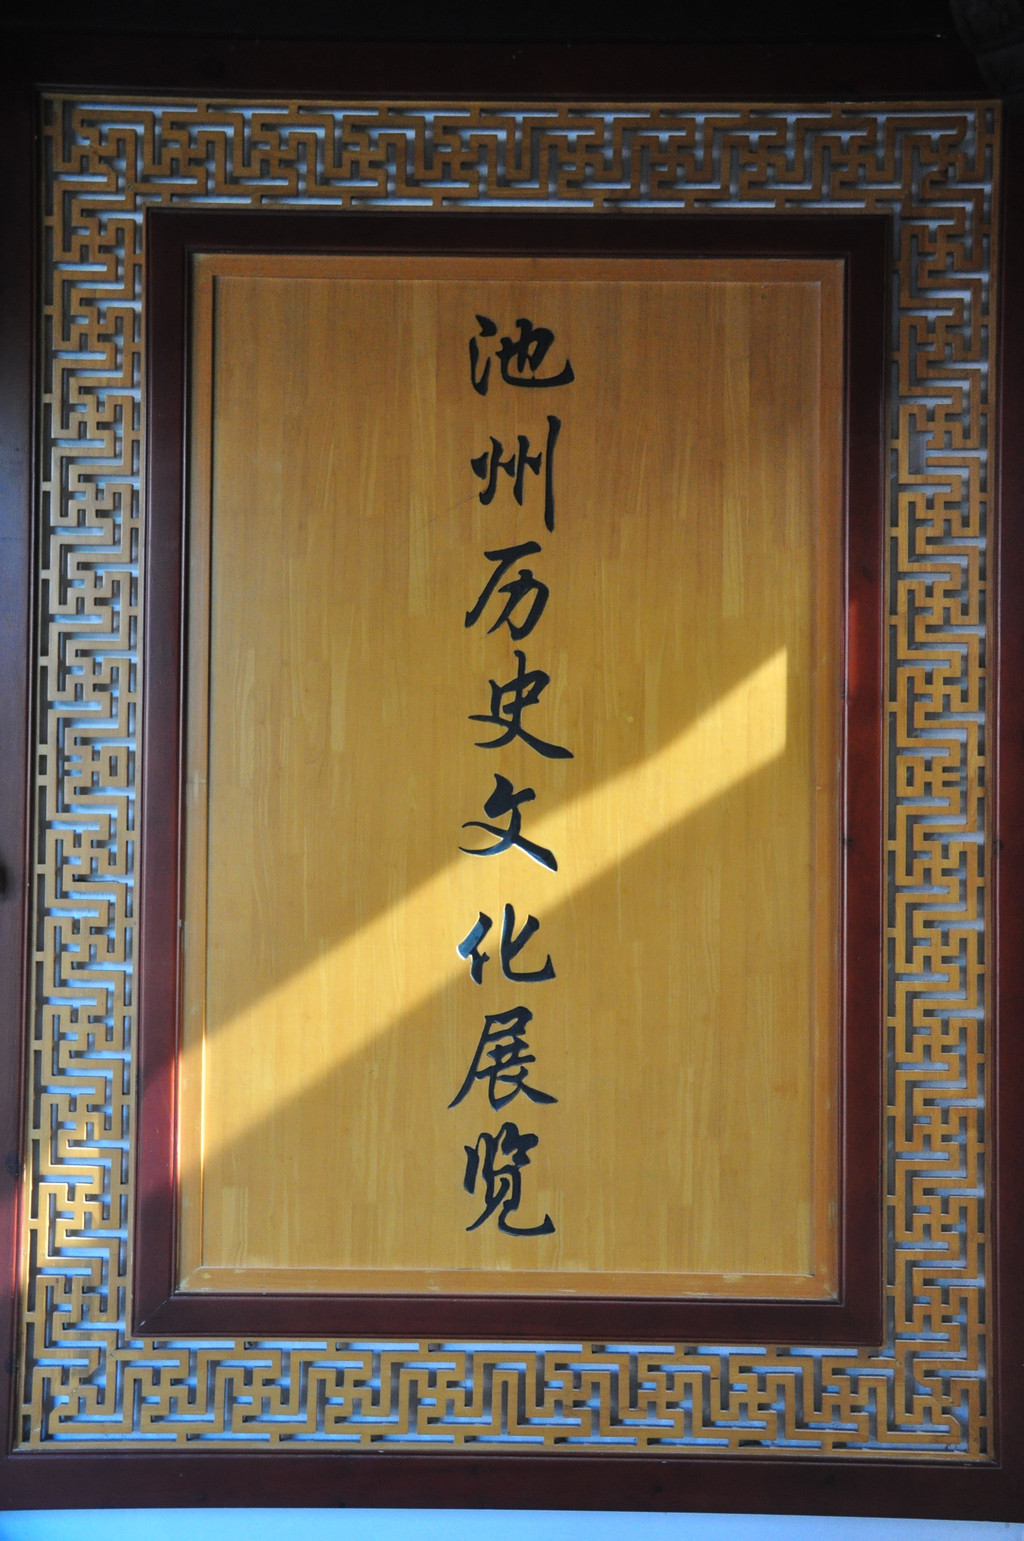 池州历史文化展览